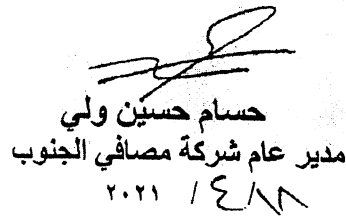 حسام حسين ولي
مدير عام شركة مصافي الجنوب
٢٠٢١ / ٤ / ١٨